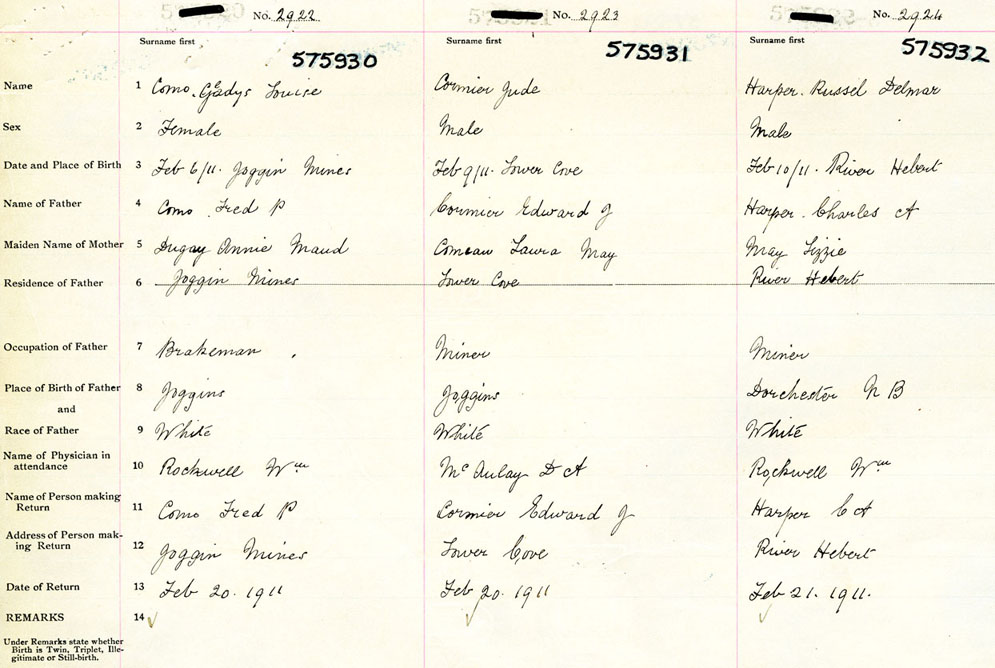 No. 2922 No. 2923 No. 2924
Surname first Surname first Surname first
575930 575931 575932
Name 1 Como. Gladys Louise Cormier Jude Harper. Russel Delmar
Sex 2 Female Male Male
Date and Place of Birth 3 Feb 6/11. Joggin Mines Feb 9/11. Lower Cove Feb 10/11. River Hebert
Name of Father 4 Como Fred P Cormier Edward J Harper. Charles A
Maiden Name of Mother 5 Dugay Annie Maud Comeau Laura May May Lizzie
Residence of Father 6 Joggin Mines Lower Cove River Hebert
Occupation of Father 7 Brakeman Miner Miner
Place of Birth of Father 8 Joggins Joggins Dorchester N B
and
Race of Father 9 White White White
Name of Physician in
attendance 10 Rockwell Wm McAulay D A Rockwell Wm
Name of Person making
Return 11 Como Fred P Cormier Edward J Harper C A
Address of Person mak-
ing Return 12 Joggin Mines Lower Cove River Hebert
Date of Return 13 Feb 20. 1911 Feb 20. 1911 Feb 21. 1911.
REMARKS 14 ✓ ✓ ✓
Under Remarks state whether
Birth is Twin, Triplet, Ille-
gitimate or Still-birth.